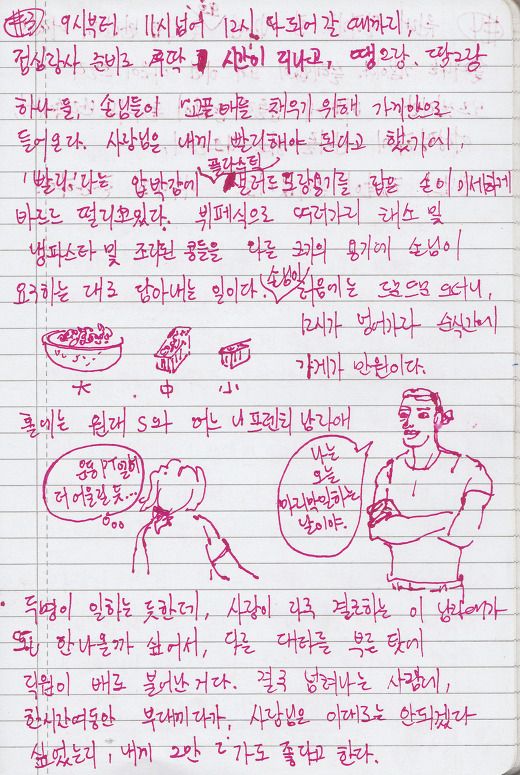 #3) 9시부터 11시 넘어 12시 다 되어 갈 때까지,
점심장사 준비로 후딱 시간이 지나고, 땡그랑, 땅그랑
하나 둘, 손님들이 고픈 배를 채우기 위해 가게안으로
들어온다. 사장님은 내게 빨리해야 된다고 했기에,
'빨리'라는 압박감에 플라스틱 샐러드 포장용기를 잡은 손이 미세하게
바르르 떨리고있다. 뷔페식으로 여러가지 채소 및
냉파스타 및 조리된 콩들을 다른 크기의 용기에 손님이
요구하는 대로 담아내는 일이다. 손님이 처음에는 드문드문 오더니,
12시가 넘어가자 순식간에
가게가 만원이다.
大 中 小
홀에는 원래 S와 어느 프렌치 남자애
운동 PT일이
더 어울릴 듯...
나는
오늘
마지막 일하는
날이야.
두명이 일하는 듯한데, 사장이 자주 결근하는 이 남자애가
또 안나올까 싶어서, 다른 대타를 부른 탓에
직원이 배로 불어난거다. 결국 넘쳐나는 사람에,
한시간여동안 부대끼다가, 사장님은 이대로는 안되겠다
싶었는지, 내게 2만 가도 좋다고 한다.